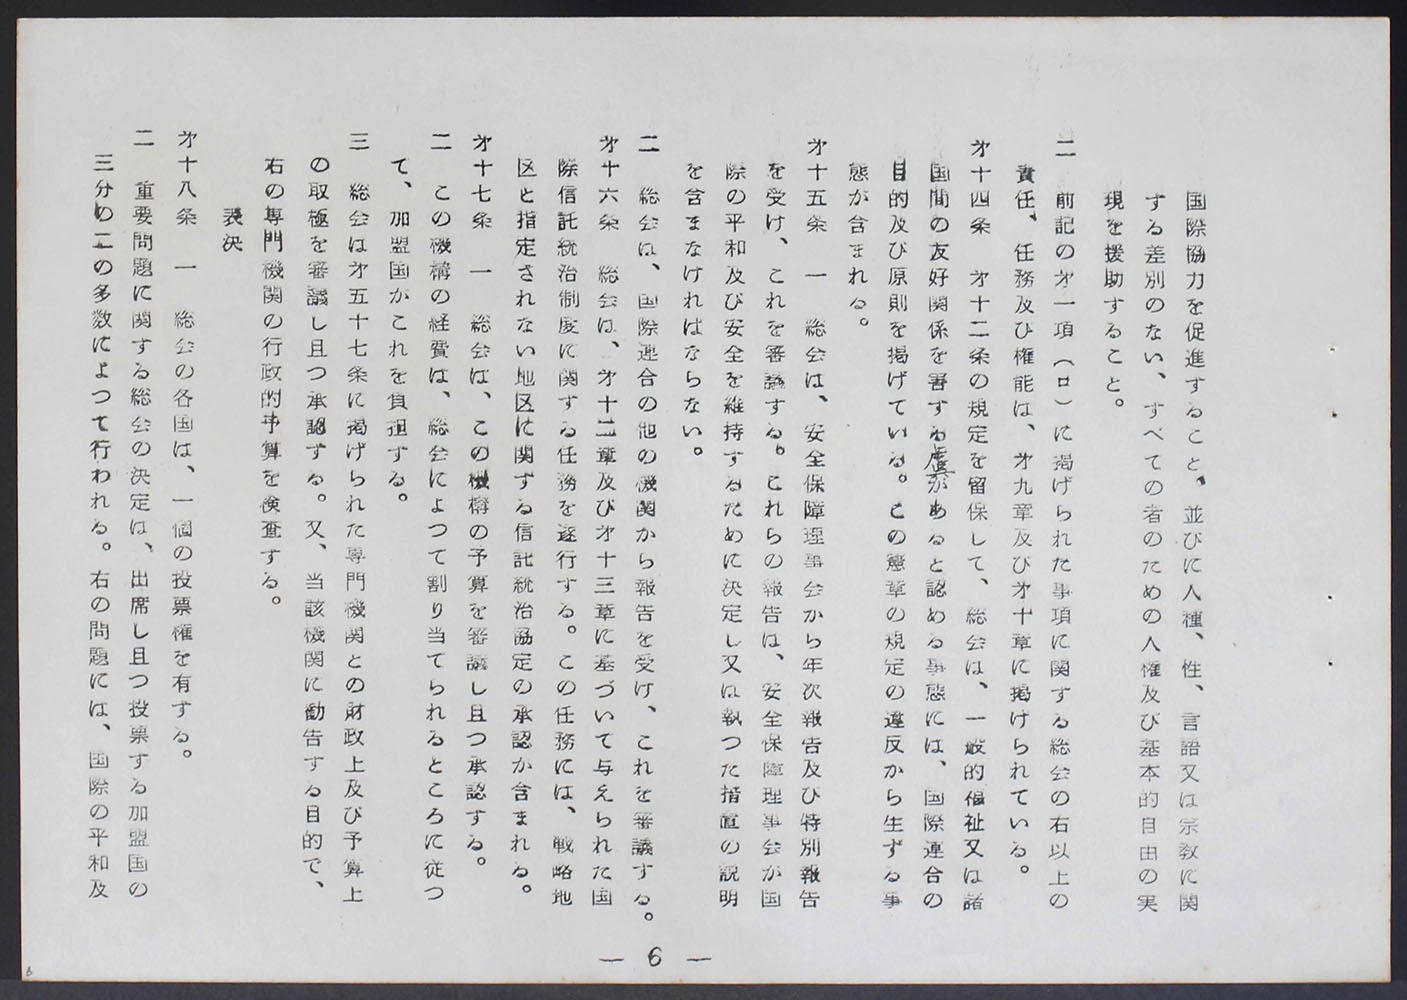 国際協力を促進すること、並びに人種、性、言語又は宗教に関
する差別のない、すべての者のための人権及び基本的自由の実
現を援助すること。
二　前記の才一項（ロ）に掲げられた事項に関する総会の右以上の
責任、任務及び権能は、才九章及び才十章に掲げられている。
才十四条　才十二条の規定を留保して、総会は、一般的福祉又は諸
国間の友好関係を害する虞があると認める事態には、国際連合の
目的及び原則を掲げている。この憲章の規定の違反から生ずる事
態が含まれる。
才十五条　一　総会は、安全保障理事会から年次報告及び特別報告
を受け、これを審議する。これらの報告は、安全保障理事会が国
際の平和及び安全を維持するために決定し又は執つた措置の説明
を含まなければならない。
二　総会は、国際連合の他の機関から報告を受け、これを審議する。
才十六条　総会は、才十二章及び才十三章に基づいて与えられた国
際信託統治制度に関する任務を遂行する。この任務には、戦略地
区と指定されない地区に関する信託統治協定の承認が含まれる。
才十七条　一　総会は、この機構の予算を審議し且つ承認する。
二　この機構の経費は、総会によつて割り当てられるところに従つ
て、加盟国がこれを負担する。
三　総会は才五十七条に掲げられた専門機関との財政上及び予算上
の取極を審議し且つ承認する。又、当該機関に勧告する目的で、
右の専門機関の行政的予算を検査する。
表決
才十八条　一　総会の各国は、一個の投票権を有する。
二　重要問題に関する総会の決定は、出席し且つ投票する加盟国の
三分の二の多数によつて行われる。右の問題には、国際の平和及
— 6 —
6